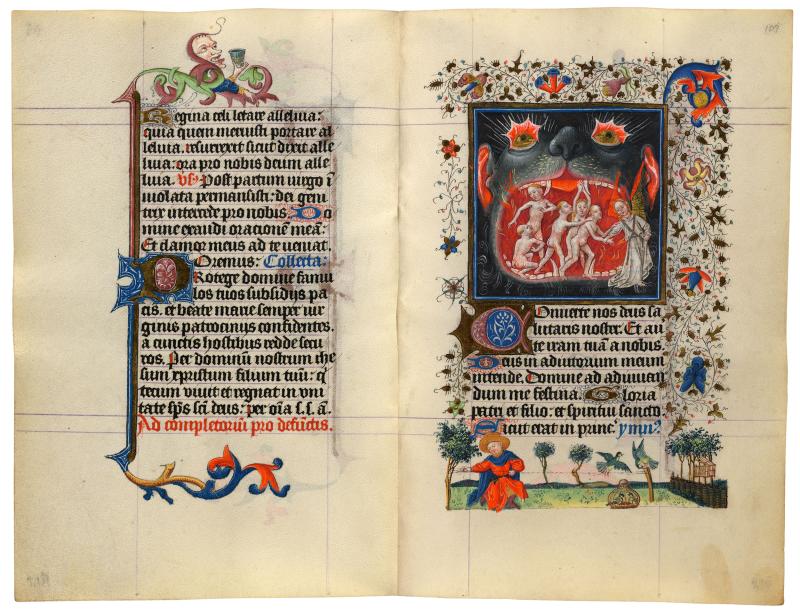 Regina celi letare alleluia:
quia quem meruisti portare al
leluia. resurrexit sicut dixit alle
luia: ora pro nobis deum alle
luia. vs. Post partum virgo i
uiolata permansisti: dei geni
trix intercede pro nobis. Do
mine exaudi orationem meā.
Et clamor meus ad te ueniat.
Oremus: Collecta:
Protege domine famu
los tuos subsidijs pa
cis. et beate marie semper uir
ginis patrocinijs confidentes.
a cunctis hostibus redde secu
ros. Per dominum nostrum ihe
sum xpristum filium tuum: q
tecum uiuit et regnat in uni
tate sps sci deus: per oīa s. s. a.
Ad completoriū pro defūctis.
109
Conuerte nos deus sa
lutaris noster. Et au
te iram tuā a nobis.
Deus in adiutorium meum
intende. Domine ad adiuuan
dum me festina. Gloria
patri et filio: et spiritui sancto.
Sicut erat in princ. ymn?